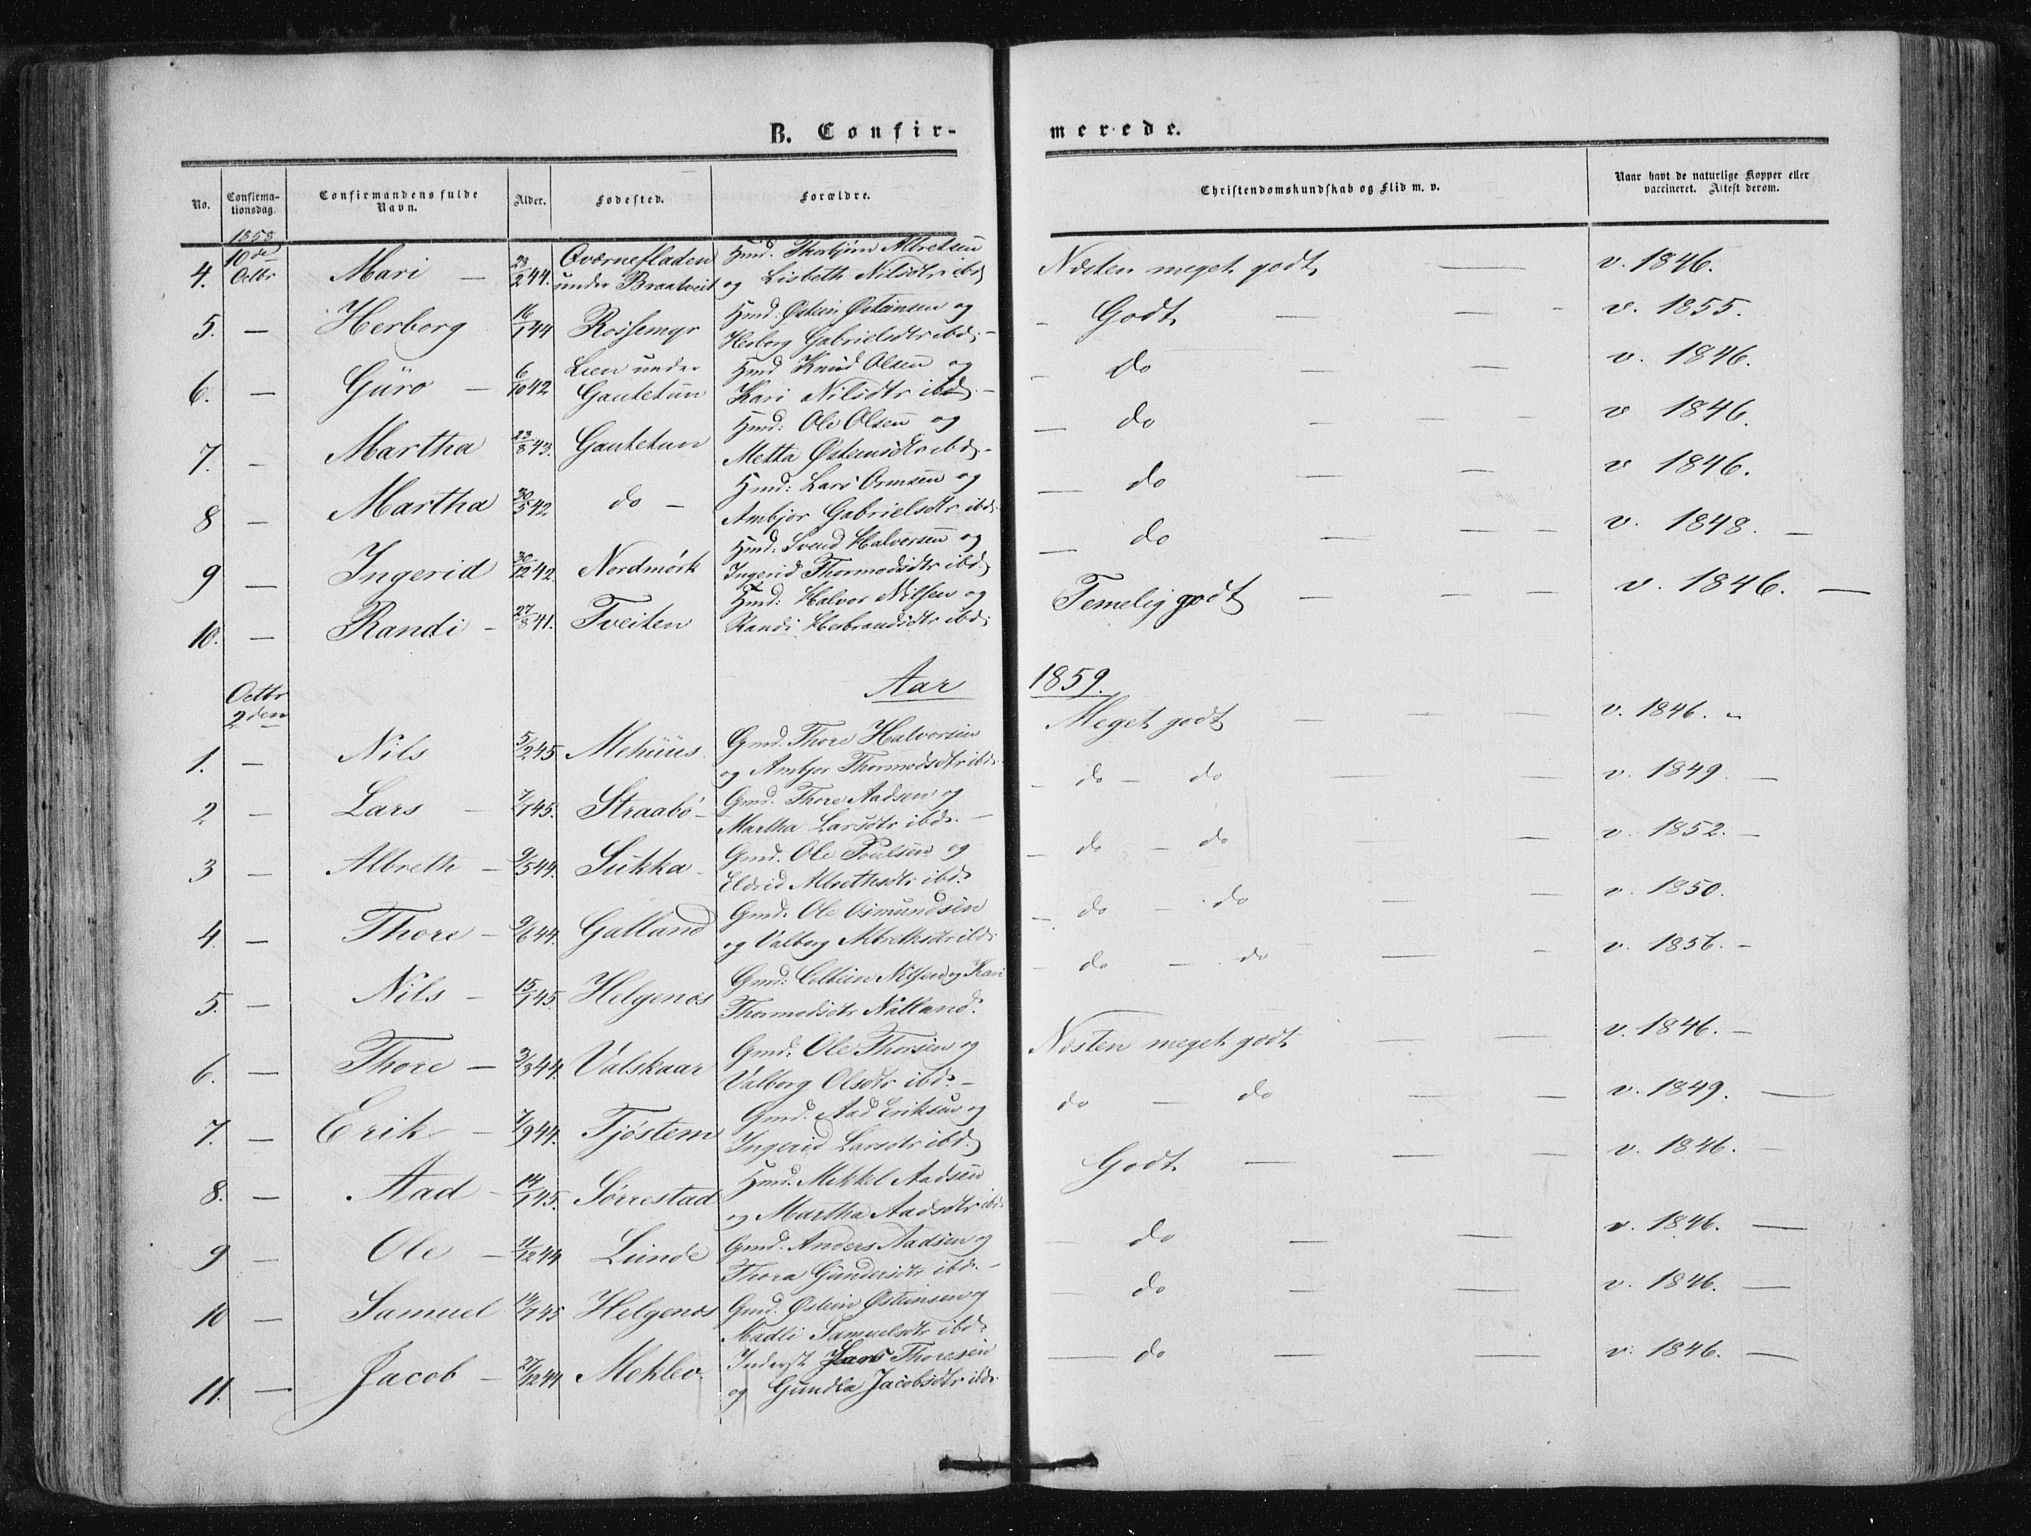 B. Confir-
merede.
No.
Confirma-
tionsdag.
Confirmandens fulde
Navn.
Alder.
Fødested.
Forældre.
Christendomskundskab og Flid m. v.
Naar havt de naturlige Kopper eller
vaccineret. Attest derom.
1858
4. 10de Octbr Mari — 23/2 44. Qværnefladen under Braatveit Hmd. Thorbjørn Albretsen og Lisbeth Nilsdtr ibd. Næsten meget godt — v. 1846.
5. — Herborg 16/1 44 Rossemyr Hmd: Østein Østensen og Herborg Gabrielsdtr ibd. — Godt — — v. 1855.
6. — Guro — 6/10 42 Lien under Gautetun Hmd Knud Olsen og Kari Nilsdtr ibd. — do — — v. 1846.
7. — Martha 23/8 43. Gautetun Hmd: Ole Olsen og Metta Østensdtr ibd. — do — — v 1846.
8 — Martha 30/5 42 do — Hmd: Lars Ormsen og Ambjør Gabrielsdtr ibd. — do — — v 1846.
9 — Ingerid 30/12 42. Nordmørk Hmd: Svend Halvorsen og Ingerid Thormodsdtr ibd. — do — — v. 1848. —
10. — Randi — 27/8 41. Tveiten Hmd: Halvor Nilsen og Randi Herbrandsdtr ibd. Temelig godt — — — v. 1846. —
Aar 1859.
Octbr
2den
1. — Nils 5/2 45. Mehuus. Gmd. Thore Halvorsen og Ambjør Thormodsdtr ibd. Meget godt — — — v. 1846. -
2 — Lars — 7/1 45. Straabø — Gmd. Thore Aadsen og Martha Larsdtr ibd. — do — do — — v. 1849. —
3 — Albreth — 9/5 44. Sukka — Gmd. Ole Poulsen og Eldrid Albrethsdtr ibd. — do — do — v. 1852. —
4. — Thore — 9/6 44. Galland Gmd. Ole Osmundsen og Valborg Albrethsdtr ibd. — do — do — — v. 1850.
5. — Nils — 15/1 45. Helgenes Gmd: Nilsen og Kari Thormodsdtr Nalland. — do — do — — v. 1856. —
6. — Thore — 3/3 44. Valskaar Gmd: Ole Thorsen og Valborg Olsdtr ibd. — Næsten meget godt — — — v. 1846. —
7. — Erik — 7/9 44. Tjøstem Gmd. Aad Eriksen og Ingerid Larsdtr ibd. do — do — — v. 1849. —
8. — Aad — 14/1 45. Sørrestad Hmd. Mekkel Aadsen og Martha Aadsdtr ibd. Godt — — — v. 1846. —
9 — Ole — 11/12 44 Lunde Gmd. Anders Aadsen og Thora Gundersdtr ibd. — — do — — — v. 1846. —
10 — Samuel 14/1 45 Helgenes Gmd. Østein Østensen og Nadli Samuelsdtr ibd. — do — — — v. 1846. —
11. — Jacob — 27/12 44 Meklev. Inderst Lars Thoresen og Gundla Jacobsdtr ibd. — do — — v. 1846. —